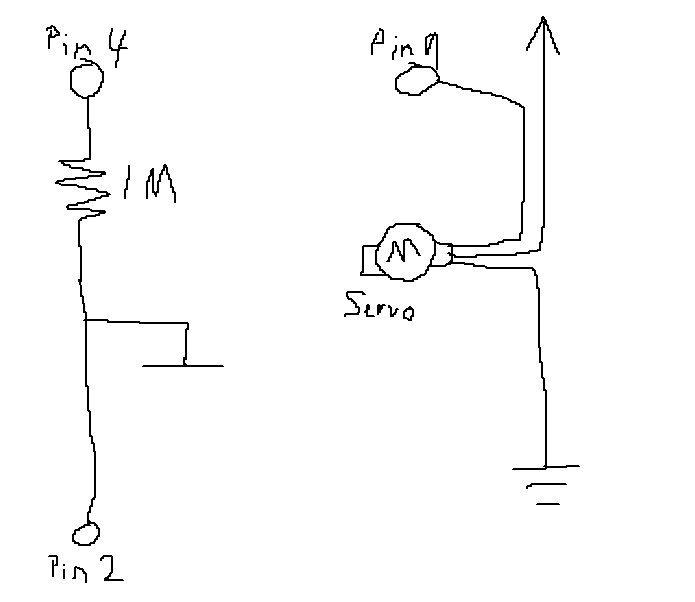 Pin 4
1M
Pin 2
Pin
M
Servo